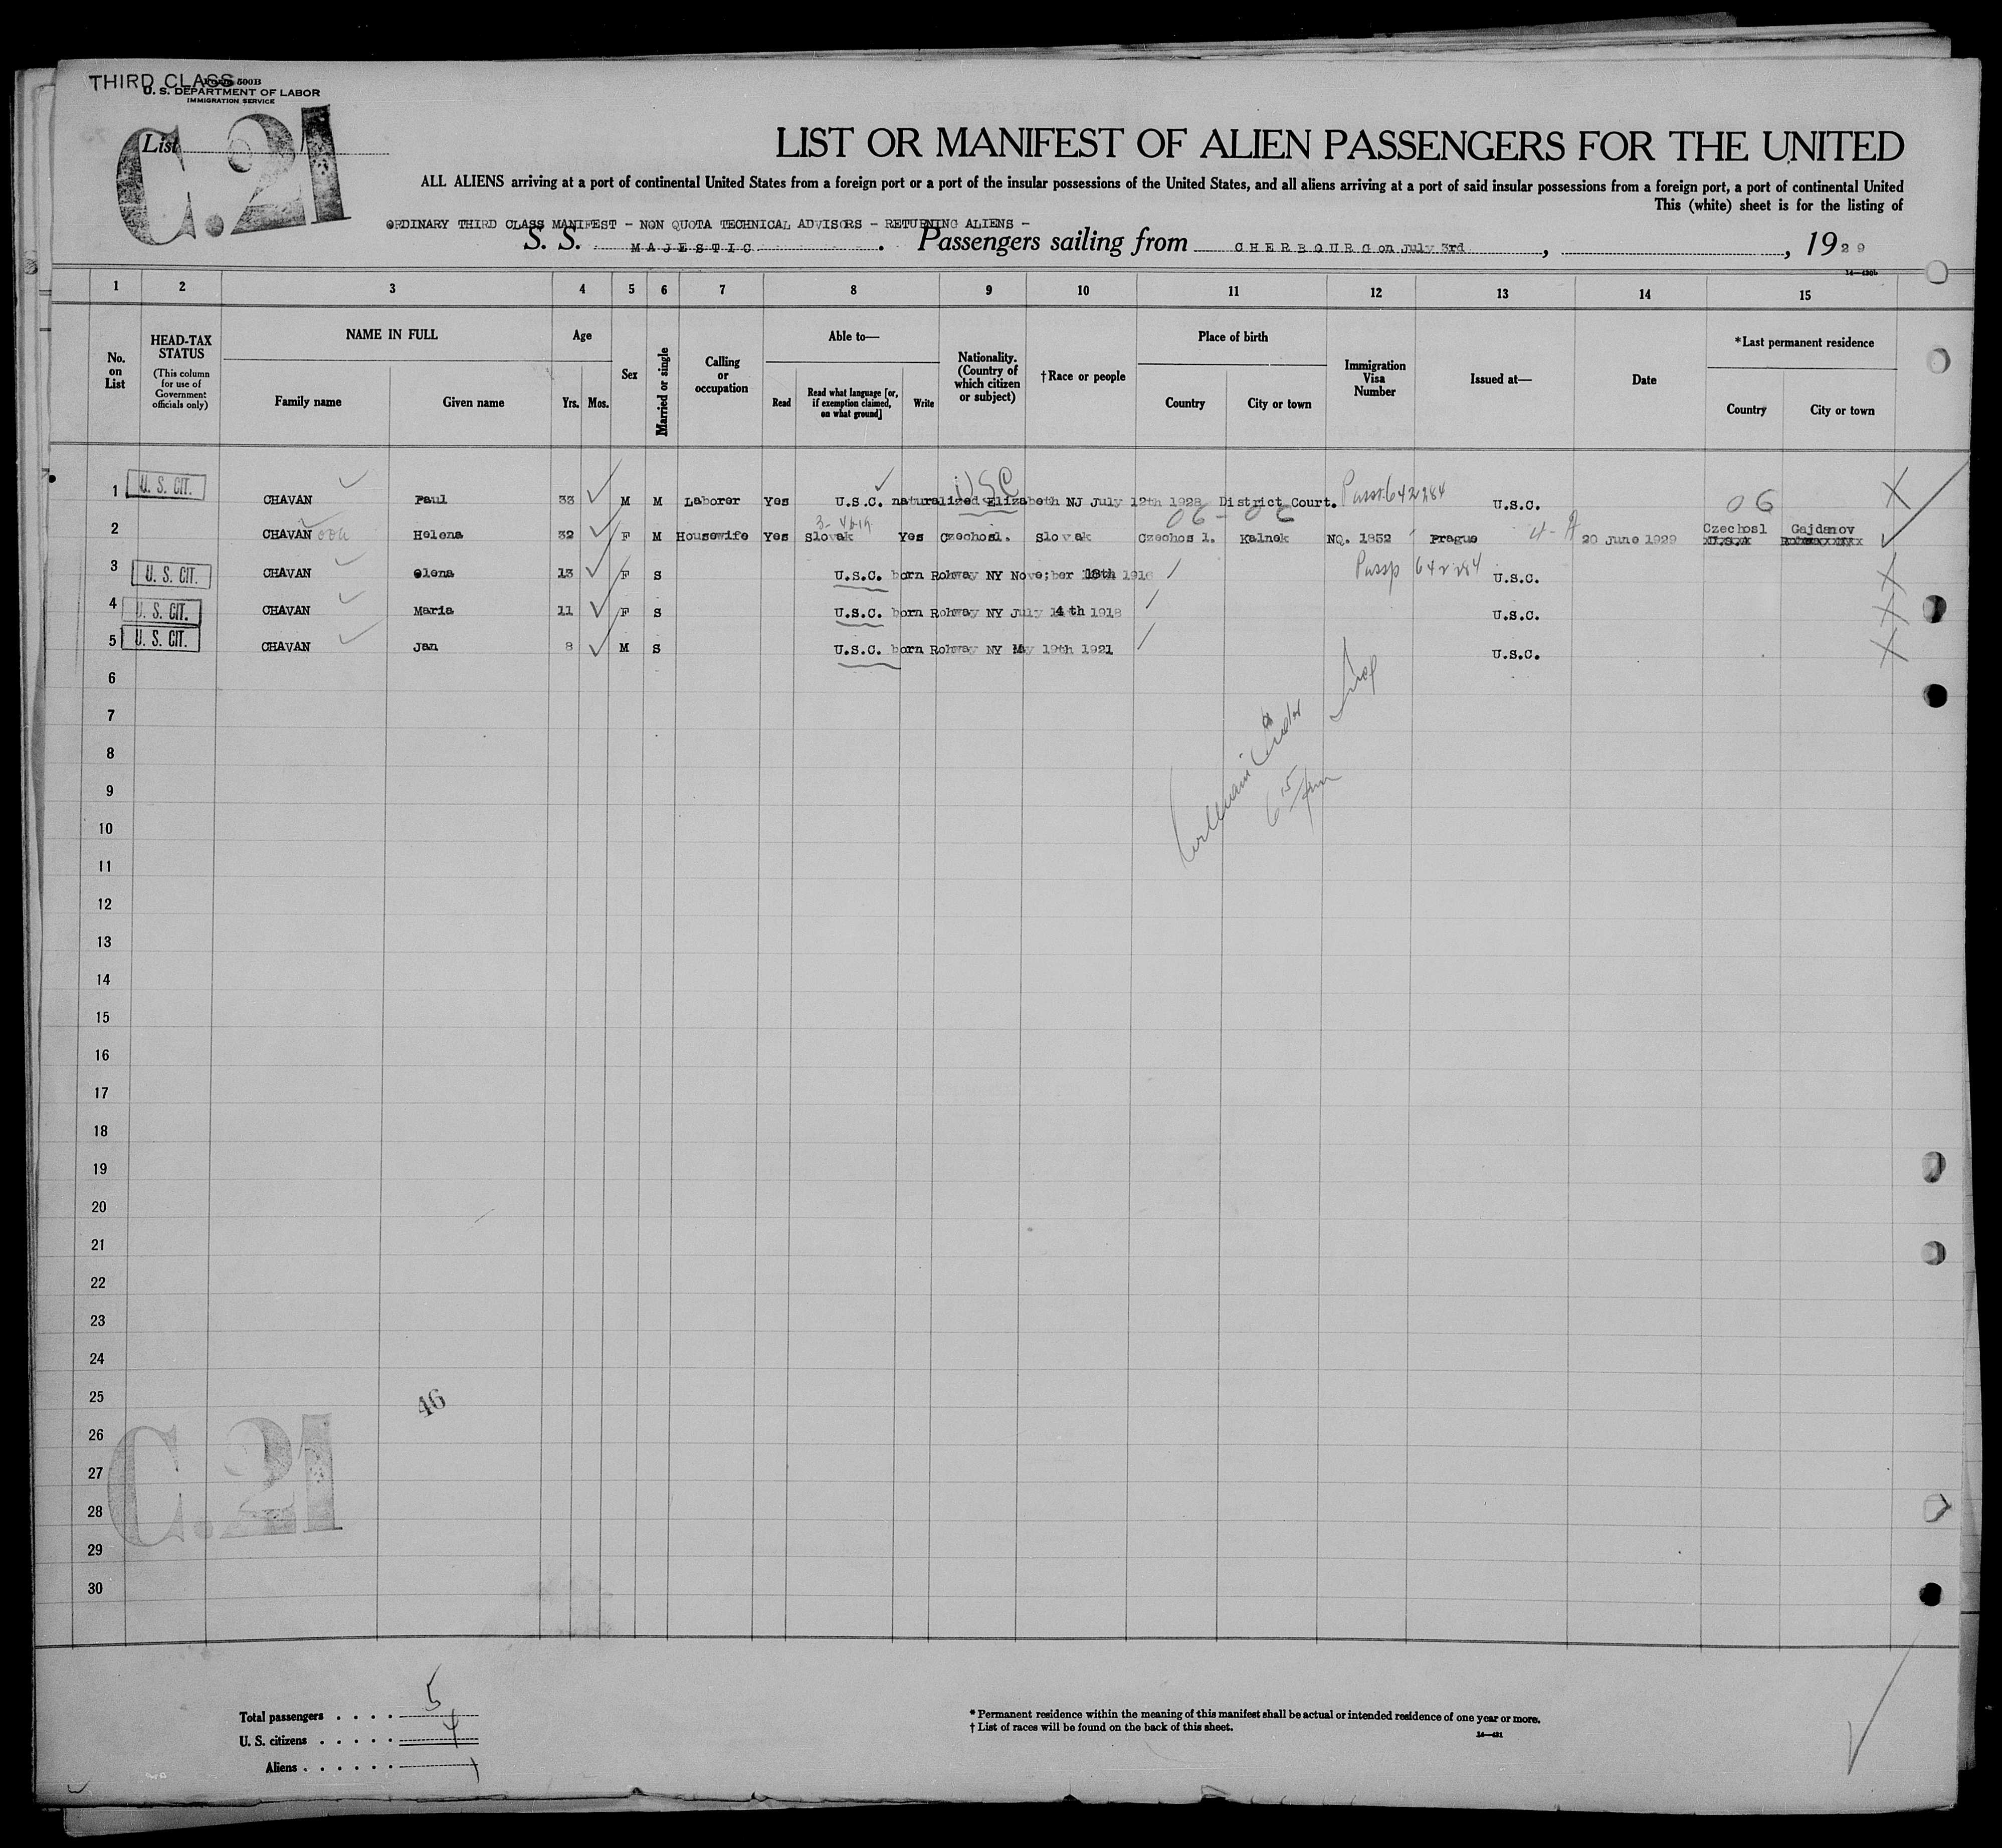 THIRD CLASS
Form 500B
U. S. DEPARTMENT OF LABOR
IMMIGRATION SERVICE
C.21
List
LIST OR MANIFEST OF ALIEN PASSENGERS FOR THE UNITED
ALL ALIENS arriving at a port of continental United States from a foreign port or a port of the insular possessions of the United States, and all aliens arriving at a port of said insular possessions from a foreign port, a port of continental United
This (white) sheet is for the listing of
ORDINARY THIRD CLASS MANIFEST - NON QUOTA TECHNICAL ADVISORS - RETURNING ALIENS -
S. S. MAJESTIC . Passengers sailing from CHERBOURG on July 3rd , , 19 29
1 2 3 4 5 6 7 8 9 10 11 12 13 14 15
No. on List
HEAD-TAX STATUS
(This column for use of Government officials only)
NAME IN FULL
Family name Given name
Age
Yrs. Mos.
Sex
Married or single
Calling or occupation
Able to—
Read Read what language [or, if exemption claimed, on what ground] Write
Nationality. (Country of which citizen or subject)
†Race or people
Place of birth
Country City or town
Immigration Visa Number
Issued at—
Date
*Last permanent residence
Country City or town
USC
1 U. S. CIT. CHAVAN Paul 33 M M Laborer Yes U.S.C. naturalized Elizabeth NJ July 12th 1928 District Court. Passp 642284 U.S.C. 06
06 - 06
2 CHAVAN Helena 32 F M Housewife Yes Slovak Yes Czechosl. Slovak Czechosl. Kalnok NQ. 1852 Prague 20 June 1929 Czechosl Gajdanov
3 U. S. CIT. CHAVAN Olena 13 F S U.S.C. born Rohway NY Nove;ber 18th 1916 Passp 642284 U.S.C.
4 U. S. CIT. CHAVAN Maria 11 F S U.S.C. born Rohway NY July 14th 1918 U.S.C.
5 U. S. CIT. CHAVAN Jan 8 M S U.S.C. born Rohway NY May 19th 1921 U.S.C.
6
7
8
9
10
11
12
13
14
15
16
17
18
19
20
21
22
23
24
25
46
26
C.21
27
28
29
30
Total passengers . . . . 5
U. S. citizens . . . . . 4
Aliens . . . . . . 1
* Permanent residence within the meaning of this manifest shall be actual or intended residence of one year or more.
† List of races will be found on the back of this sheet.
14—421